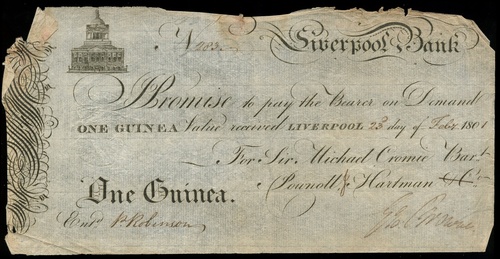 Liverpool Bank
I Promise to pay the Bearer on Demand
ONE GUINEA Value received LIVERPOOL 23 day of Feby 1801
For Sir Michael Cromie Bart.
Pownoll & Hartman & Co.
One Guinea.
Entd P. Robinson